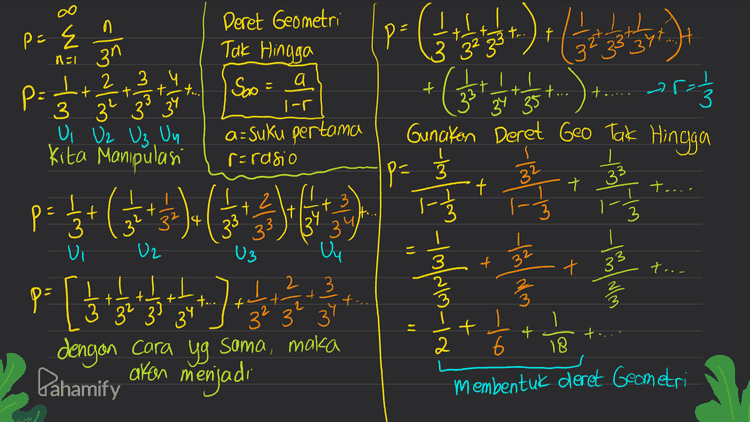 P = ∞ Σ n=1 n/3ⁿ
P = 1/3 + 2/3² + 3/3³ + 4/3⁴ + ...
U₁ U₂ U₃ U₄
Kita Manipulasi
Deret Geometri
Tak Hingga
S∞ = a/1-r
a = suku pertama
r = rasio
P = 1/3 + (1/3² + 1/3²) + (1/3³ + 2/3³) + (1/3⁴ + 3/3⁴) + ...
U₁ U₂ U₃ U₄
P = [1/3 + 1/3² + 1/3³ + 1/3⁴ + ...] + 1/3² + 2/3² + 3/3⁴ + ...
dengan cara yg sama, maka
akan menjadi
Pahamify
P = (1/3 + 1/3² + 1/3³ + ...) + (1/3² + 1/3³ + 1/3⁴ + ...) +
+ (1/3³ + 1/3⁴ + 1/3⁵ + ...) + ..... → r = 1/3
Gunakan Deret Geo Tak Hingga
P = 1/3 / 1-1/3 + 1/3² / 1-1/3 + 1/3³ / 1-1/3 + ....
= 1/3 / 2/3 + 1/3² / 2/3 + 1/3³ / 2/3 + ...
= 1/2 + 1/6 + 1/18 + ....
membentuk deret Geometri